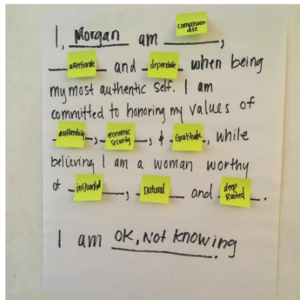 I, Morgan am compassionate,
affectionate and dependable when being
my most authentic self. I am
committed to honoring my values of
authenticity, economic security, & Gratitude, while
believing I am a woman worthy
of influential, Natural and deep Rooted.
I am OK, Not Knowing.